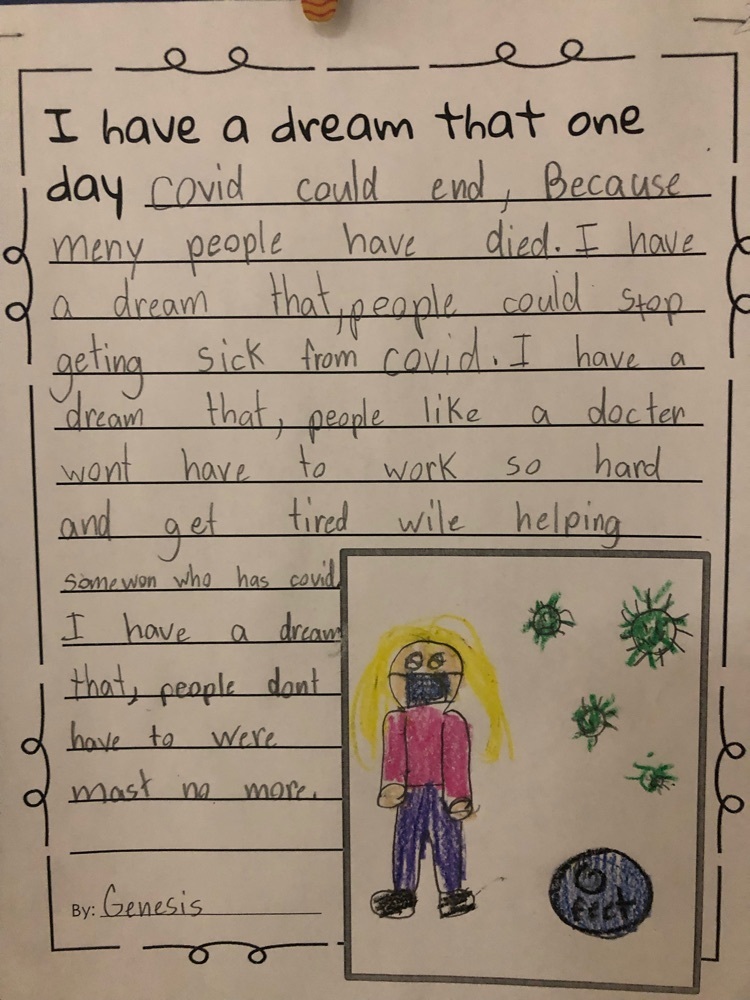 I have a dream that one
day covid could end, Because
meny people have died. I have
a dream that, people could stop
geting sick from covid. I have a
dream that, people like a docter
wont have to work so hard
and get tired wile helping
somewon who has covid.
I have a dream
that, people dont
have to were
mast no more.
By: Genesis
6
feet